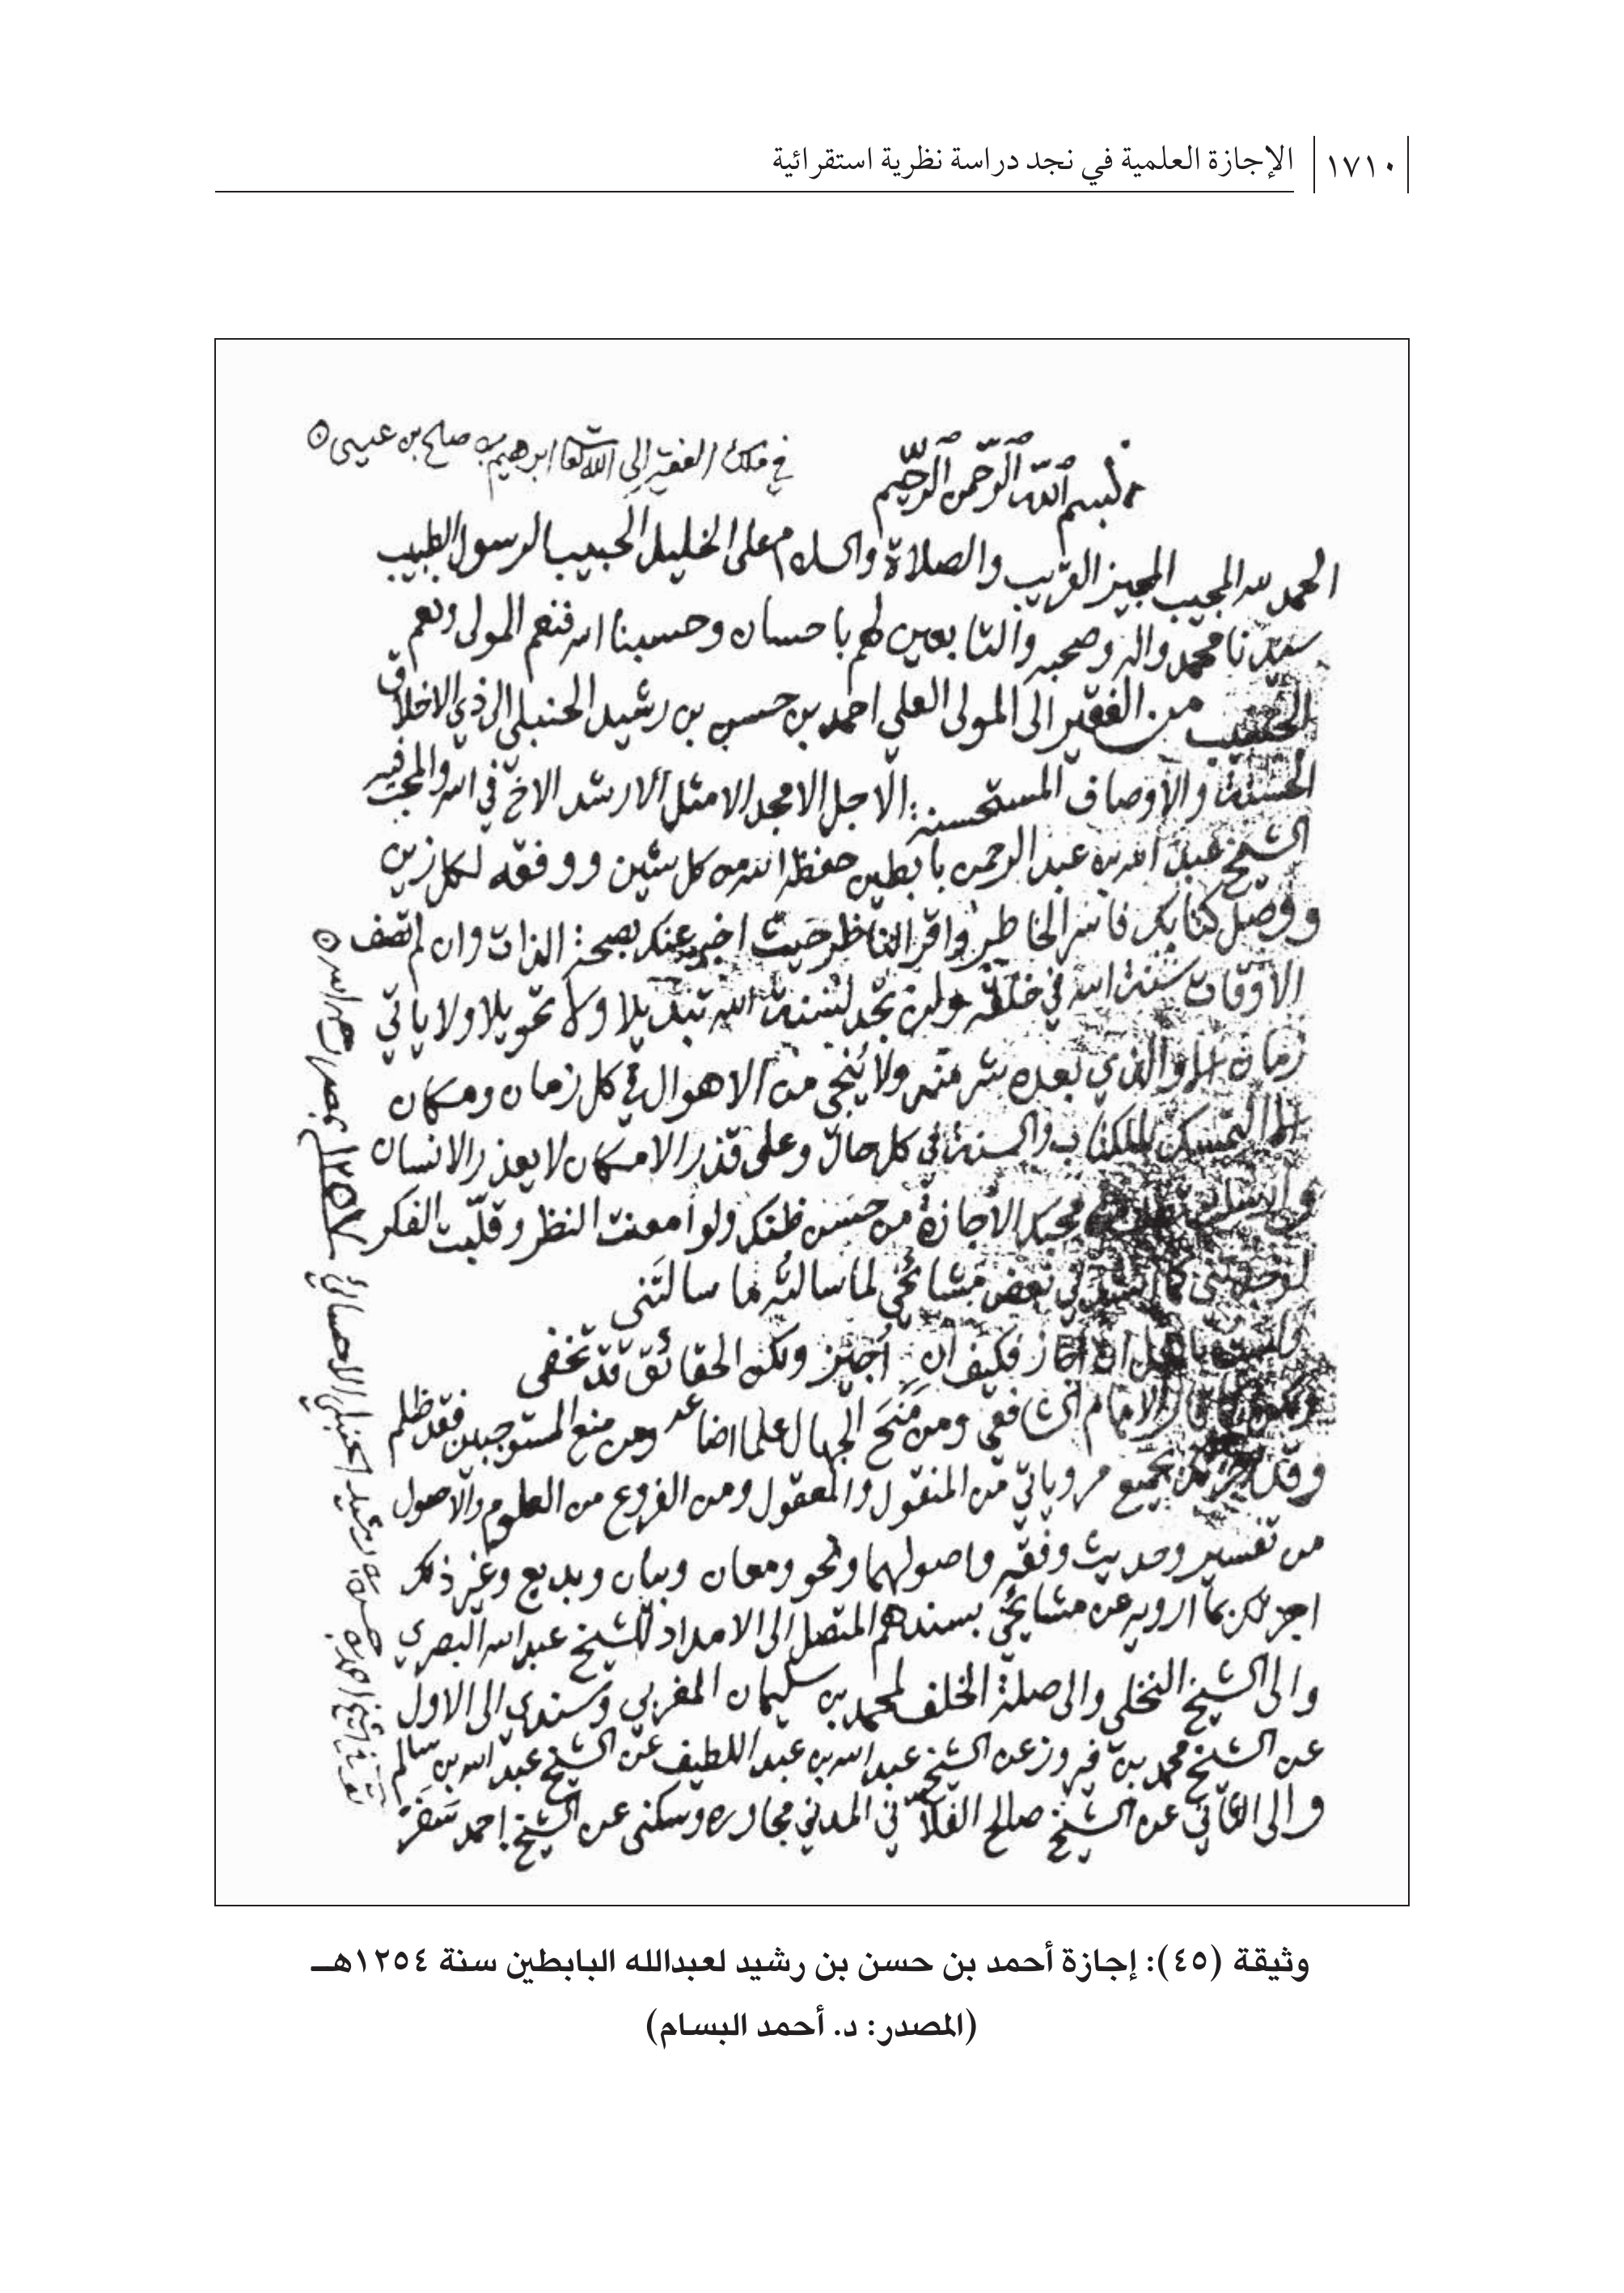 ١٧١٠
الإجازة العلمية في نجد دراسة نظرية استقرائية
في ملك الفقير الى الله تعالى ابرهيم بن صالح بن عيسى
بسم الله الرحمن الرحيم
الحمد لله المجيب المجيز القريب والصلاة والسلام على الخليل الحبيب الرسول الطبيب
سيدنا محمد واله وصحبه والتابعين لهم باحسان وحسبنا الله فنعم المولى ونعم
الحسيب من الفقير الى المولى العلي احمد بن حسن بن رشيد الحنبلي الى ذي الاخلاق
الحسنة والاوصاف المستحسنة الاجل الامجد الامثل الارشد الاخ في الله والمحب فيه
الشيخ عبد الله بن عبد الرحمن بابطين حفظه الله من كل شين ووفقه لكل زين
ووصل كتابك فاسر الخاطر واقر الناظر حيث اخبر عنكم بصحة الذات وان لم تصف
الاوقات سنة الله في خلقه ولن تجد لسنة الله تبديلا ولا تحويلا ولا ياتي
زمان الا والذي بعده شر منه ولا ينجي من الاهوال في كل زمان ومكان
الا التمسك بالكتاب والسنة في كل حال وعلى قدر الامكان لا يعذر الانسان
الاجازة من حسن ظنك ولو امعنت النظر وقلبت الفكر
لوجدتني كما انشد لي بعض مشائخي لما سالته ما سالتني
ولست باهل ان اجاز فكيف ان اجيز ولكن الحقائق قد تخفى
الامام الشافعي ومن منح الجهال علما اضاعه ومن منع المستوجبين فقد ظلم
وقد اجزتك بجميع مروياتي من المنقول والمعقول ومن الفروع من العلوم والاصول
من تفسير وحديث وفقه واصولهما ونحو ومعان وبيان وبديع وغير ذلك
اجزتك بما ارويه عن مشايخي بسندهم المتصل الى الامداد للشيخ عبد الله البصري
والى الشيخ النخلي والى صلة الخلف لمحمد بن سليمان المغربي وسندي الى الاول
عن الشيخ محمد بن فيروز عن الشيخ عبد الله بن عبد اللطيف عن الشيخ عبد الله بن سالم
والى الثاني عن الشيخ صالح الفلاني المدني مجاوره وسكنى عن الشيخ احمد سفر
الشيخ احمد بن حسن بن رشيد الحنبلي الاحسائي ١٢٥٧ بمصر رحمه الله
وثيقة (٤٥): إجازة أحمد بن حسن بن رشيد لعبدالله البابطين سنة ١٢٥٤هـ
(المصدر: د. أحمد البسام)